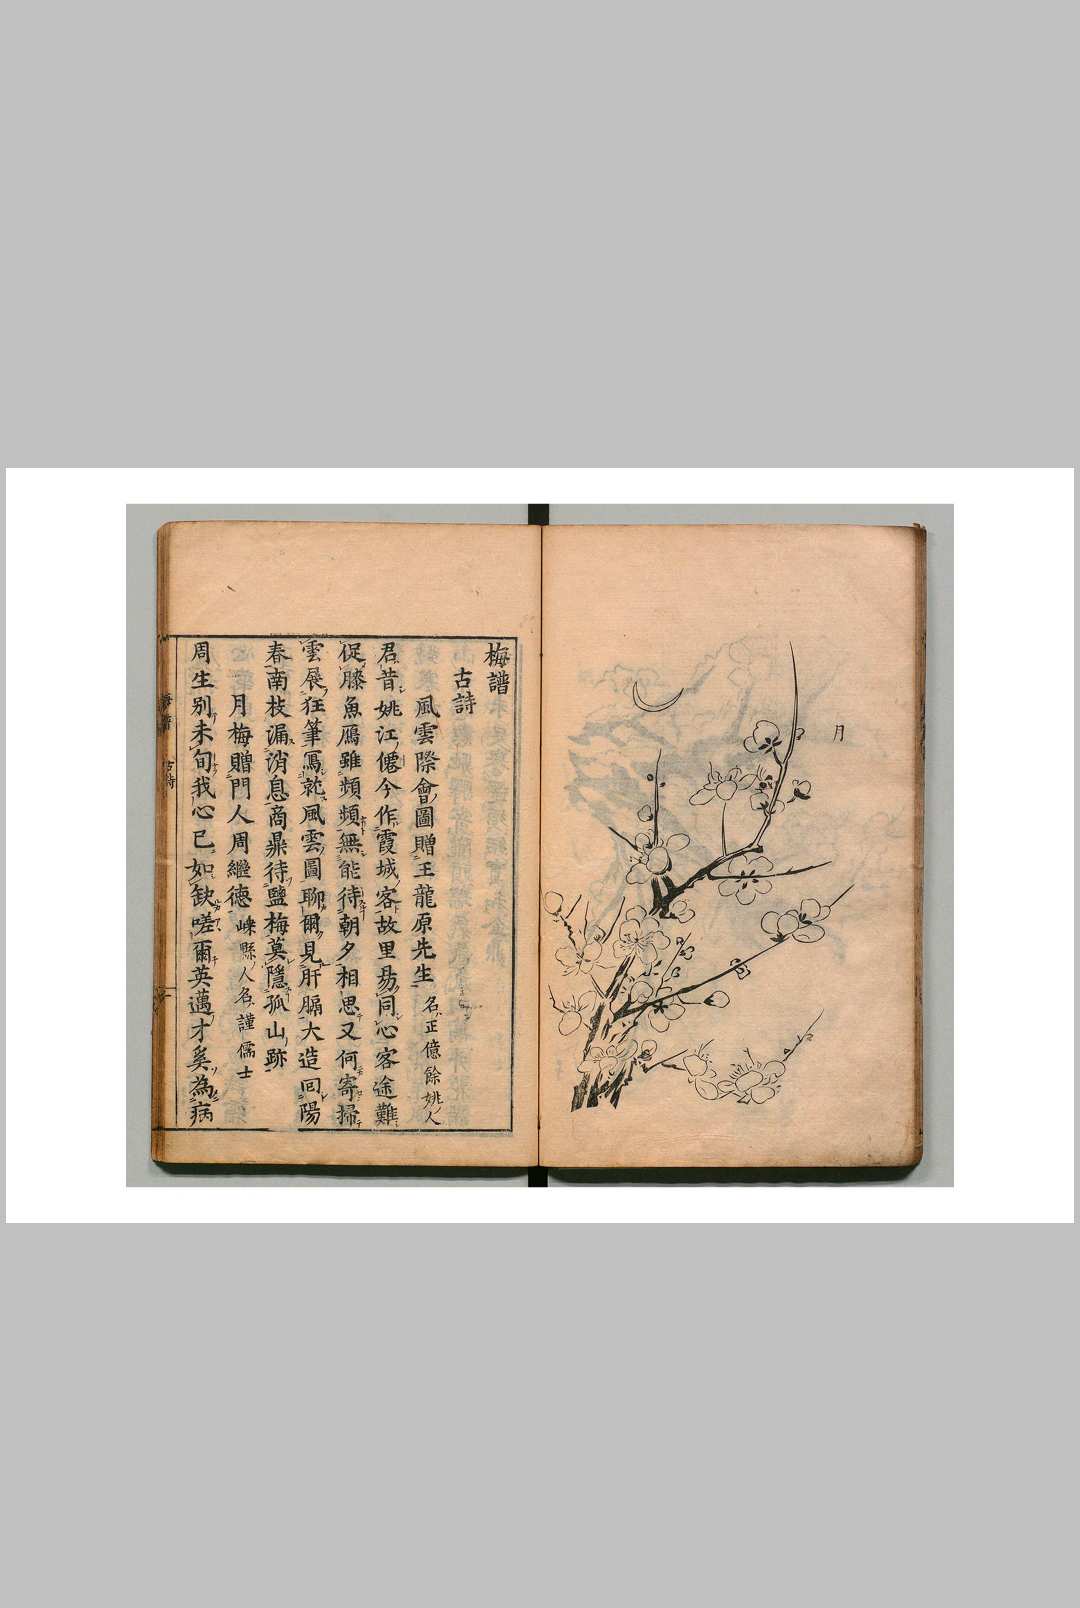 月
梅譜
古詩
風雲際會圖贈王龍原先生 名正億餘姚人
君昔姚江僊今作霞城客故里易同心客途難
促膝魚鴈雖頻頻無能待朝夕相思又何寄掃
雲展狂筆寫就風雲圖聊爾見肝膈大造回陽
春南枝漏消息商鼎待鹽梅莫隱孤山跡
月梅贈門人周繼德 嵊縣人名謹儒士
周生別未旬我心已如缺嗟爾英邁才奚為病
梅譜
古詩